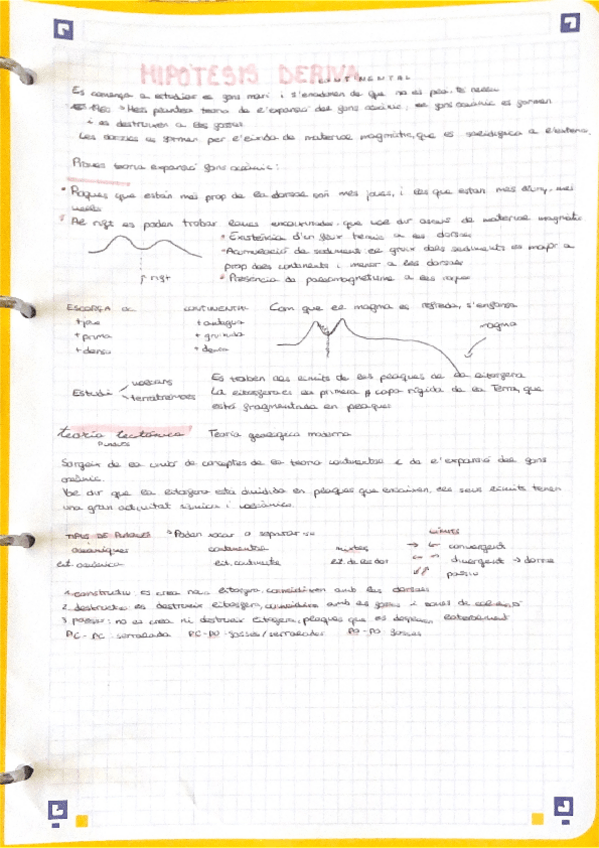 HIPÒTESIS DERIVA CONTINENTAL
Es comença a estudiar el fons marí i s'enadonen de que no és pla, té relleu
Hess planteja teoria de l'expansió del fons oceànic, el fons oceànic es formen
i es destrueixen a les fosses
Les dorsals es formen per l'eixida de material magmàtic, que es solidifica a l'exterior.
Proves teoria expansió fons oceànic:
• Roques que estan més prop de la dorsal són més joves, i les que estan més lluny, més
velles
• Al rift es poden trobar laves encoixinades, que vol dir ascens de material magmàtic
• Existència d'un flux tèrmic a les dorsals
• Acumulació de sediments el gruix dels sediments és major a
prop dels continents i menor a les dorsals
• Presència de paleomagnetisme a les roques
rift
ESCORÇA OC. CONTINENTAL Com que el magma es refreda, s'enfonsa
+ jove + antiga
+ prima + gruixuda magma
+ densa
Estudi volcans
terratrèmols
Es troben als límits de les plaques de la litosfera
La litosfera és la primera capa rígida de la Terra, que
està fragmentada en plaques
teoria tectònica Teoria geològica moderna
PLAQUES
Sorgeix de la unió de conceptes de la teoria continental i de l'expansió del fons
oceànic.
Vol dir que la litosfera està dividida en plaques que encaixen, els seus límits tenen
una gran activitat sísmica i volcànica.
TIPUS DE PLAQUES • Poden xocar o separar-se LÍMITS
oceàniques continentals mixtes → ← convergent
lit. oceànica lit. continental lit. de les dos ← → divergent → dorsal
passiu
1. constructiu: es crea nova litosfera, coincidixen amb les dorsals
2. destructiu: es destrueix litosfera, coincidixen amb les fosses i zones de
3. passiu: no es crea ni destrueix litosfera, plaques que es desplacen lateralment
PC - PC: serralada PC-PO: fosses/serralades PO-PO: fosses